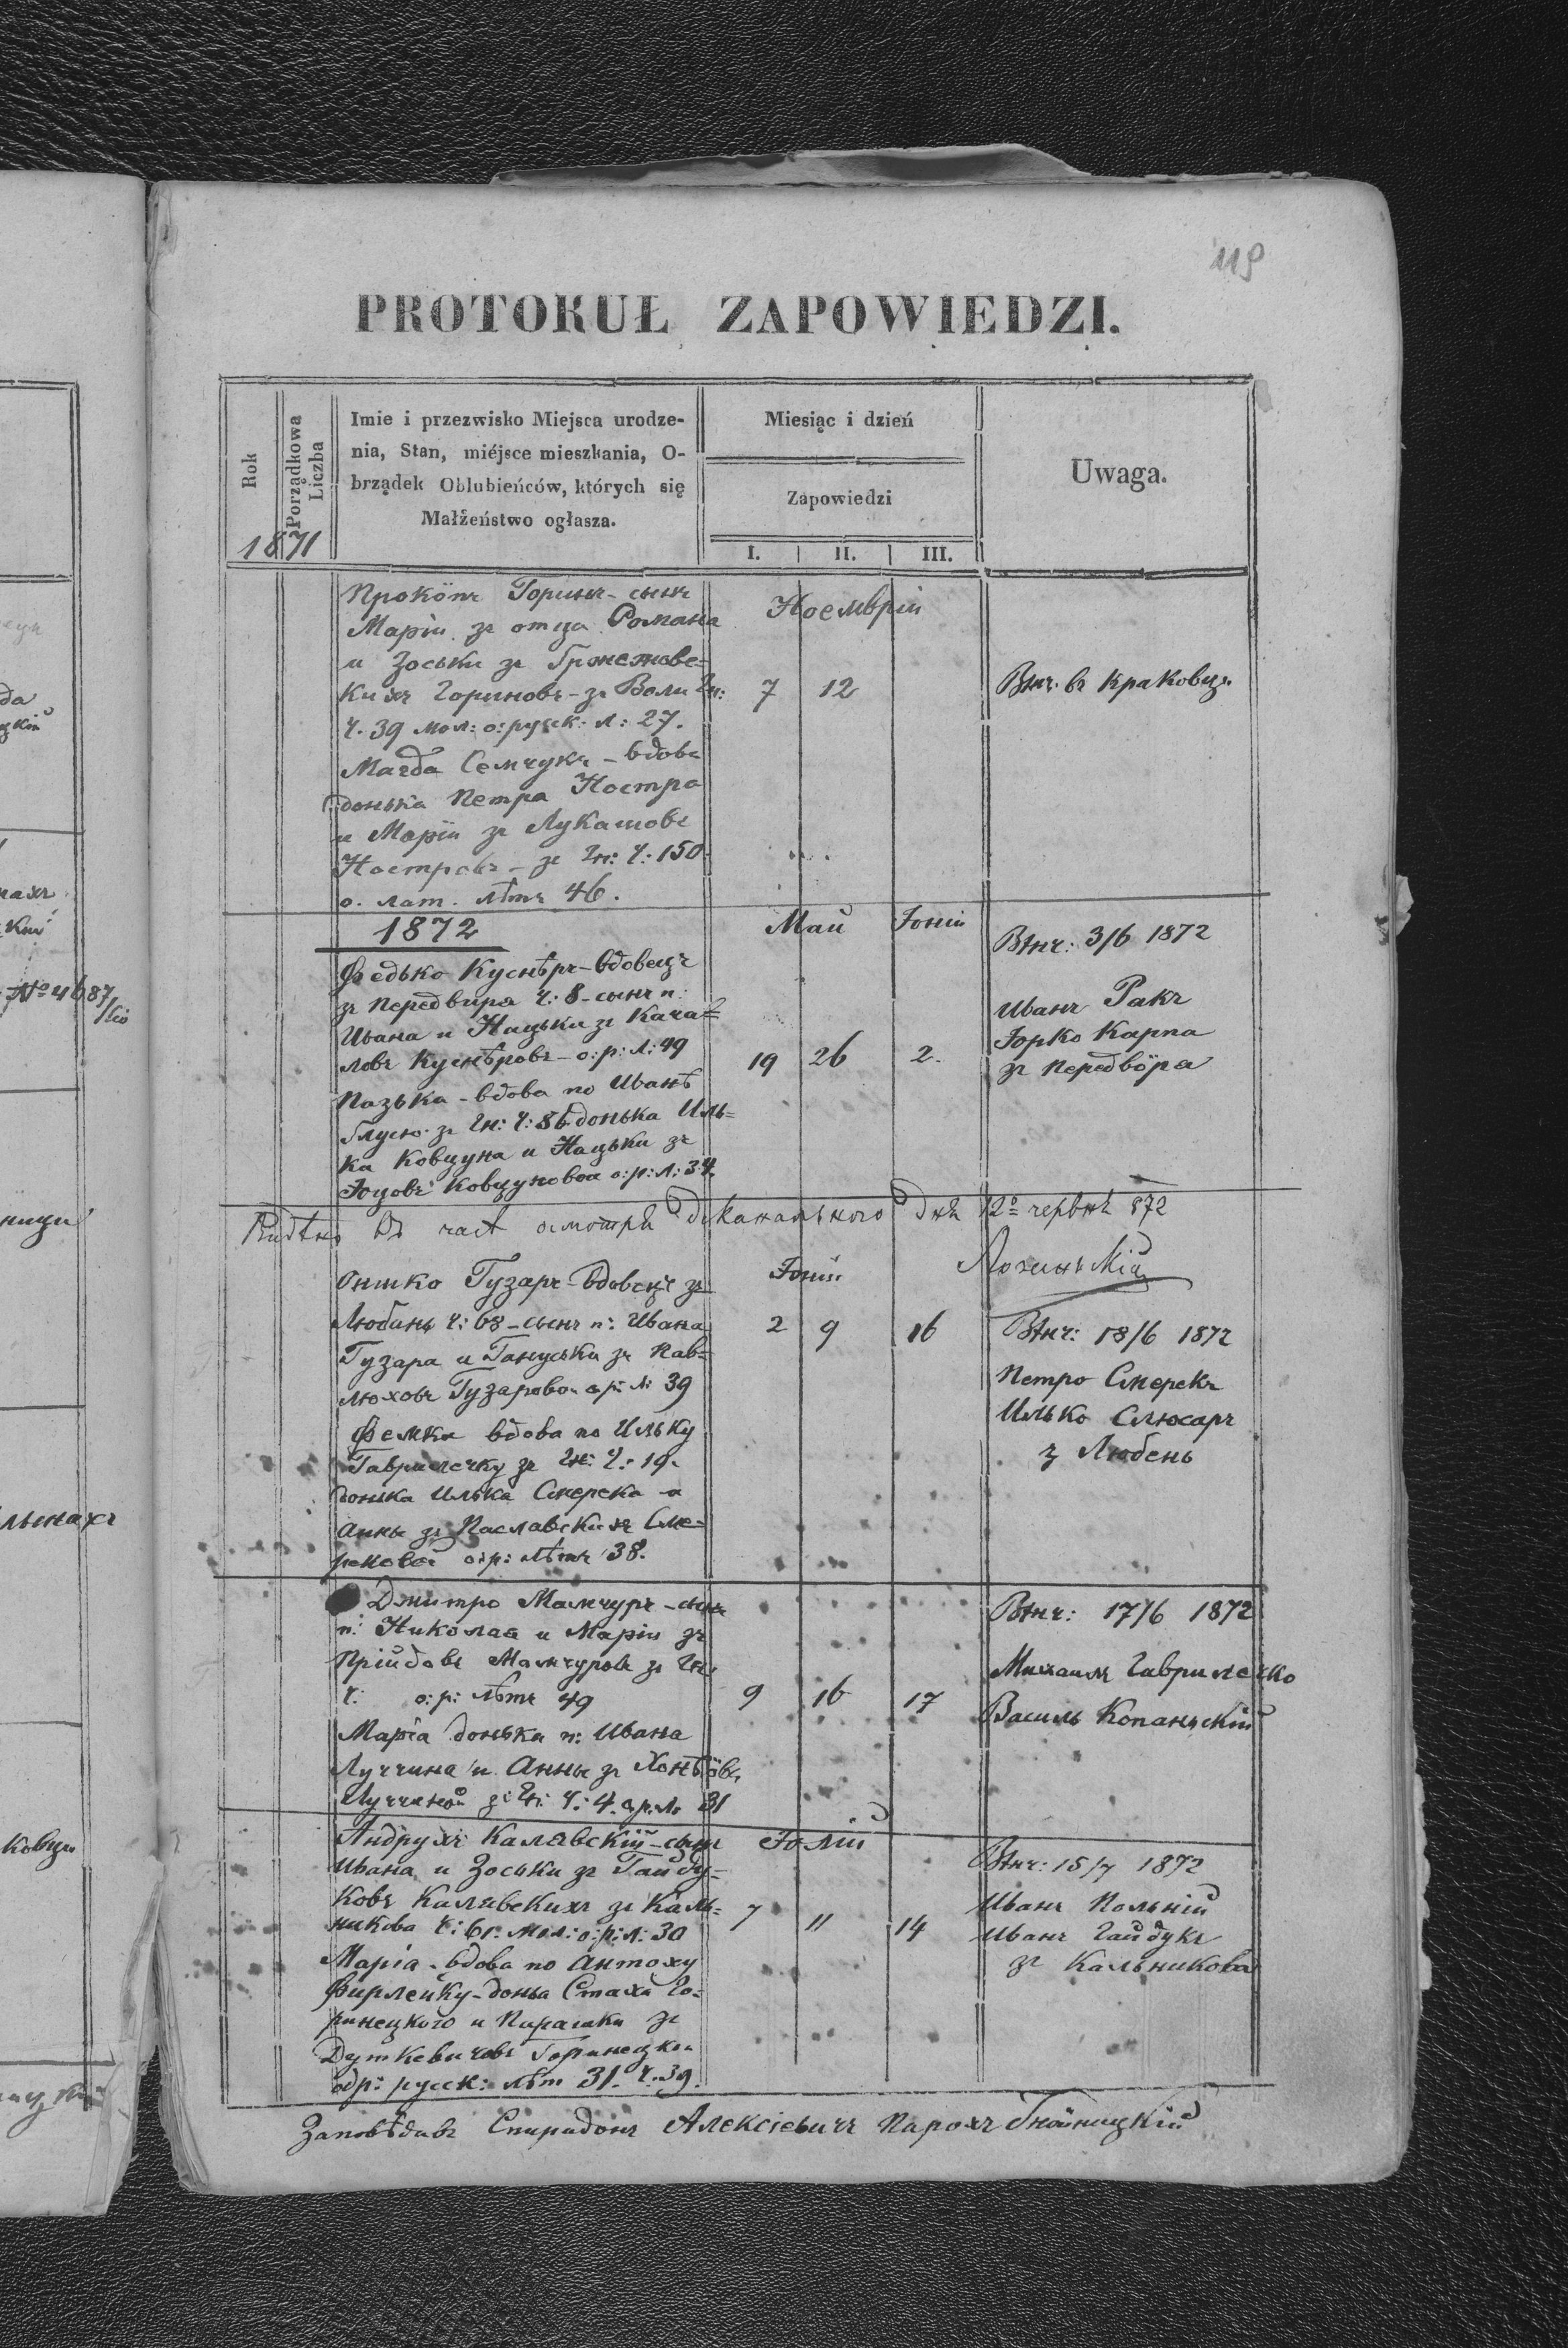 119
PROTOKUŁ ZAPOWIEDZI.
Rok
Porządkowa Liczba
Imie i przezwisko Miejsca urodze-
nia, Stan, miéjsce mieszkania, O-
brządek Oblubieńców, których się
Małżeństwo ogłasza.
Miesiąc i dzień
Zapowiedzi
I. II. III.
Uwaga.
1871
Прокöпъ Горинъ - сынъ
Маріи зъ отца Романа
и Зоськи зъ
кихъ Гориновъ - зъ Воли Гн:
Ч. 39 мол: о: русск: л: 27.
Магда Семчукъ - вдова
донька Петра Костра
и Маріи зъ Лукашовъ
Костровъ - зъ Гн: Ч: 150
о. лат. лѣтъ 46.
Ноемврій
7 12
Внч. въ Краковци
1872
Федько Куснѣръ - вдовецъ
зъ Передвира ч: 8 - сынъ п:
Ивана и Нацьки зъ Кача=
ловъ Куснѣровъ - о: р: л: 49
Пазька - вдова по Иванѣ
зъ Гн: Ч: 86 донька Иль=
ка Ковцуна и Нацьки зъ
Юцовъ Ковцуновои о: р: л: 34.
Май Юній
19 26 2.
Внч: 3/6 1872
Иванъ Ракъ
Юрко Карпа
зъ Передвöра
Видѣно въ часѣ осмотра деканального дня 12º червня 872
Онышко Гузаръ - вдовецъ зъ
Любинь ч: 68 - сынъ п: Ивана
Гузара и Гануськи зъ Пав=
люховъ Гузаровои о: р: л: 39
Фемка вдова по Ильку
Гаврилечку зъ Гн: Ч: 19.
донька Илька Смерека и
Анны зъ Паславскихъ Сме=
рековой о: р: лѣтъ 38.
Юній
2 9 16
Внч: 18/6 1872
Петро Смерекъ
Илько Слюсаръ
з Любень
Дмитро Мамчуръ - сынъ
п: Николая и Маріи зъ
Пріидавъ Мамчуровъ зъ Гн:
Ч: о: р: лѣтъ 49
Марія донька п: Ивана
Луччина и Анны зъ
Луччиной зъ Гн: Ч: 4. о: р: л: 31
9 16 17
Внч: 17/6 1872
Михаилъ Гаврилечко
Василь Копаньскій
Андрухъ Калявскій - сынъ
Ивана и Зоськи зъ Гайду=
ковъ Калявскихъ зъ Каль=
никова Ч: 61: мол: о: р: л: 30
Марія - вдова по Антоху
Фирлейку - донька Стаха Го=
ринецкого и Параски зъ
Дуткевичовъ Горинецкои
обр: русск: лѣт 31. Ч. 39.
Юлій
7 11 14
Внч: 15/7 1872
Иванъ Польній
Иванъ Гайдукъ
зъ Кальникова
Заповѣдавъ Спиридонъ Алексіевичъ Парохъ Гнойницкій